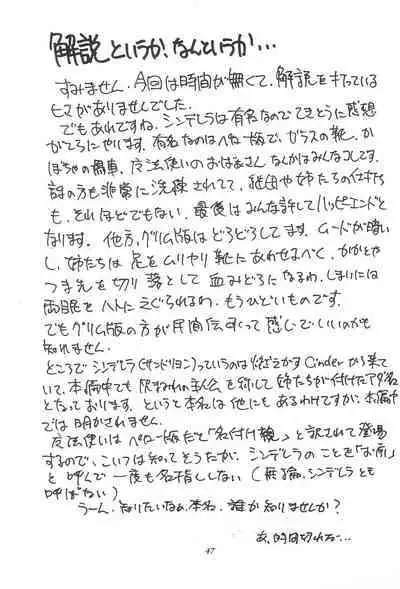 解説というか、なんというか…
すみません、今回は時間が無くて、解説を打っている
ヒマがありませんでした。
でもあれですね、シンデレラは有名なのでてきとうに感想
がてらにやります。有名なのはペロー版で、ガラスの靴、か
ぼちゃの馬車、魔法使いのおばあさんなんかはみんなコレです。
話の方も非常に洗練されてて、継母や姉たちの仕打ち
も、それほどでもない、最後はみんな許してハッピーエンドと
なります。他方、グリム版はどろどろしてます。ムードが暗い
し、姉たちは足をムリヤリ靴にあわせるべく、かかとや
つま先を切り落として血みどろになるわ、しまいには
両眼をハトにえぐられるわ、もうひどいものです。
でもグリム版の方が民間伝承って感じでいいのかも
知れません。
ところでシンデレラ(サンドリヨン)っていうのは燃えかすCinderから来て
いて、本編中でも灰まみれの主人公を称して姉たちが付けたアダ名
となっております。というと本名は他にもあるわけですが、本編中
では明かされません。
魔法使いはペロー版だと「名付け親」と訳されて登場
するので、こいつは知ってそうだが、シンデレラのことを「お前」
と呼んで一度も名指ししない(無論、シンデレラとも
呼ばない)
うーん、知りたいなぁ、本名。誰か知りませんか?
あ、時間切れだ…
47